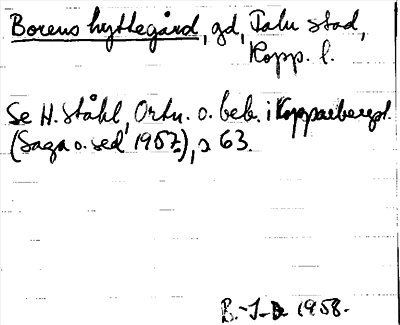 Borens hyttegård, gd, Falu stad,
Kopp. l.
Se H. Ståhl, Ortn. o. beb. i Kopparbergsl.
(Saga o. sed 1957), s 63.
B.-J-D. 1958.